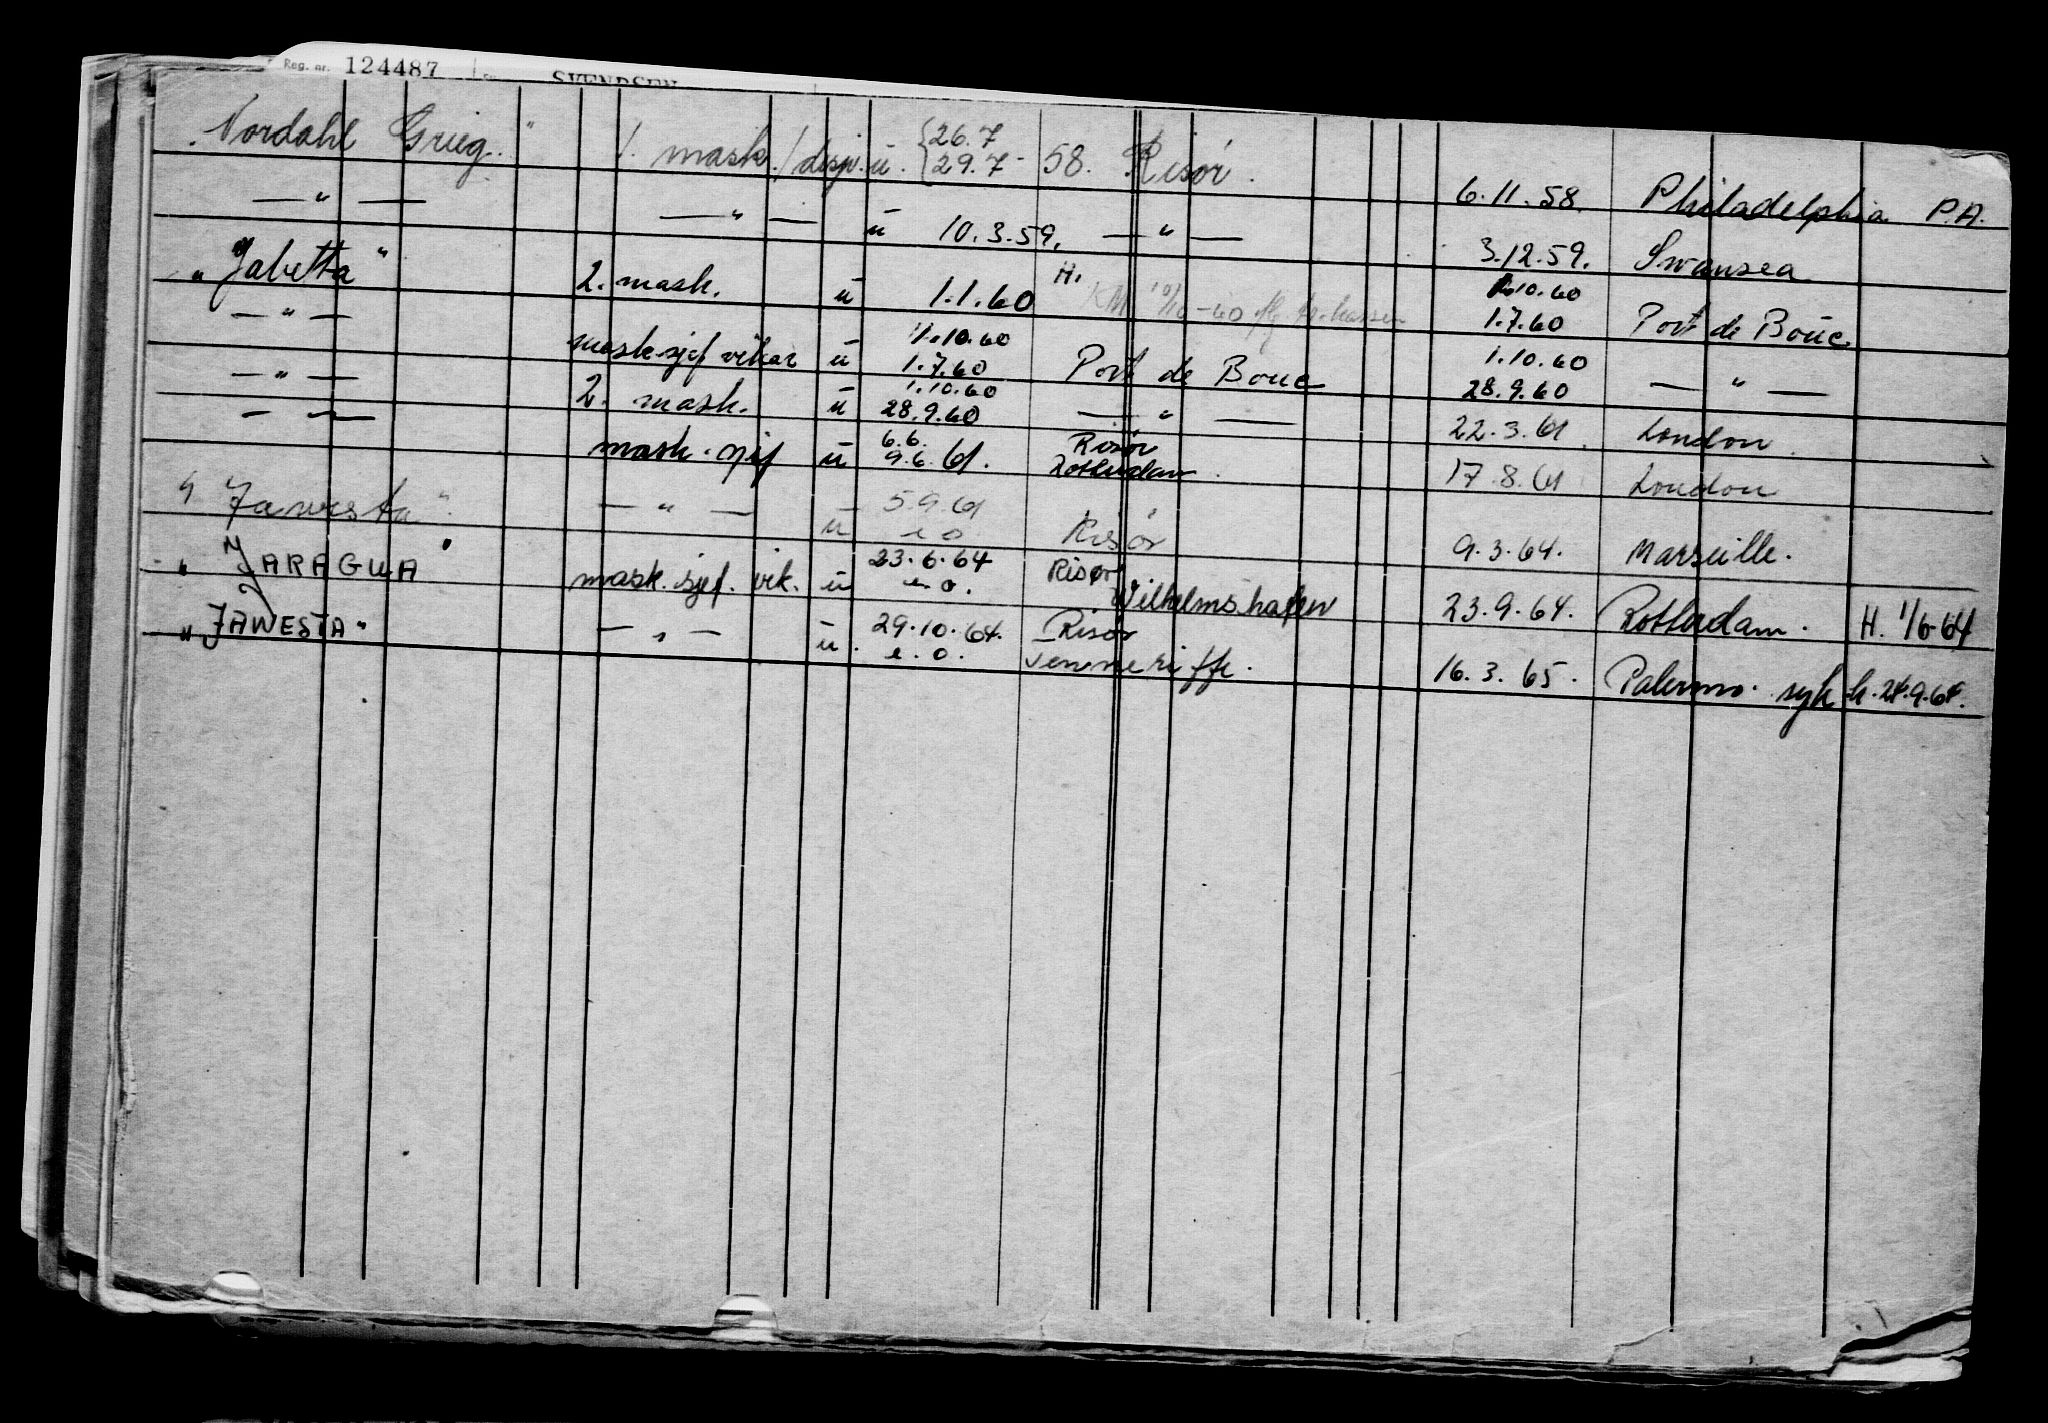 Reg. nr. 124487 SVENDSEN
"Nordahl Grieg" 1. mask./disp. u. {26.7 29.7 - 58. Risör. 6.11.58. Philadelphia P.A.
—"— —"— u 10.3.59. —"— 3.12.59. Swansea
"Jabetta" 2. mask. u 1.1.60 H. KM 10/10-60 1.10.60 1.7.60 Port de Bouc
—"— mask.sjef vikar u 1.10.60 1.7.60 Port de Bouc 1.10.60 28.9.60 —"—
—"— 2. mask. u 1.10.60 28.9.60 —"— 22.3.61. London.
—"— mask.sjef u 6.6. 9.6.61. Risör Rotterdam. 17.8.61 London
"Jawesta" —"— u 5.9.61 e.o. Risör 9.3.64. Marseille.
"JARAGUA" mask.sjef. vik. u 23.6.64 e.o. Risør Wilhelmshafen 23.9.64. Rotterdam. H. 1/6-64
"JAWESTA" —"— u. 29.10.64. e.o. Risør Tenneriffe. 16.3.65. Palermo. syk h. 24.9.64.